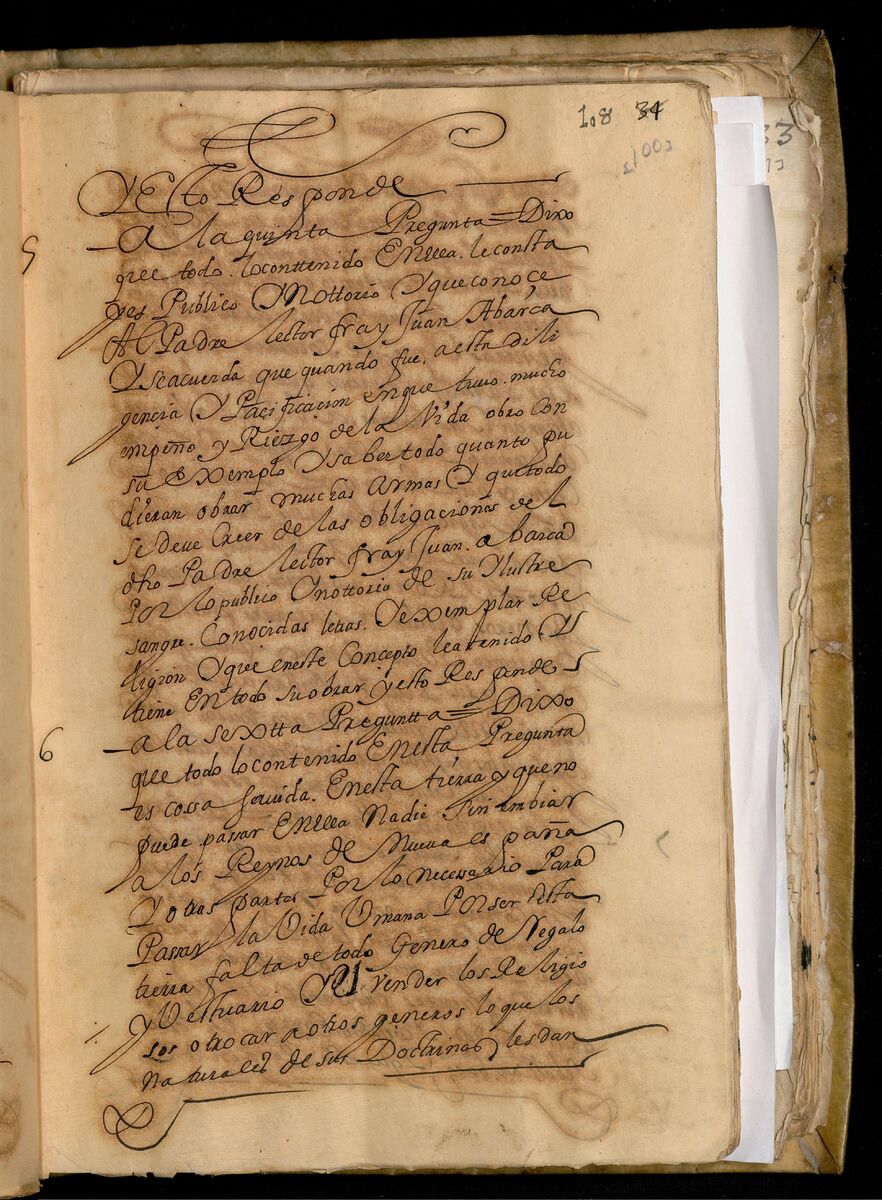 108 34
1003
Y Esto Responde
5 A la quinta Pregunta = Dixo
que todo. lo conttenido En ella. le consta
yes Publico Y Nottorio Y que conoçe
Al Padre lector fray Juan Abarca
Y se acuerda que quando fue. a esta dili
gençia Y Pacificaçion en que tuuo. mucho
empeño y Riezgo de la Vida obro con
su Exemplo Y saber todo quanto pu
dieran obrar muchas armas Y que todo
se deue Creer de las obligaciones del
dho Padre lector fray Juan. abarca
Por lo publico Y nottorio de su Ylustre
sangre. Conocidas letras. Y exemplar Re
ligion Y que en este Concepto lea tenido Y
tiene En todo su obrar y esto Responde
6 A la sextta Preguntta = Dixo
que todo lo contenido En esta Pregunta
es cossa. En esta tierra y que no
puede passar En ella Nadie Sin imbiar
a los Reynos de Nueua españa
Y otras partes Por lo necessario Para
Passar la Vida Umana Por ser Esta
tierra falta de todo Genero de Regalo
y Vestuario Y el vender los Religio
sos o trocar a otros generos lo que los
Naturales de sus Doctrinas les dan
33